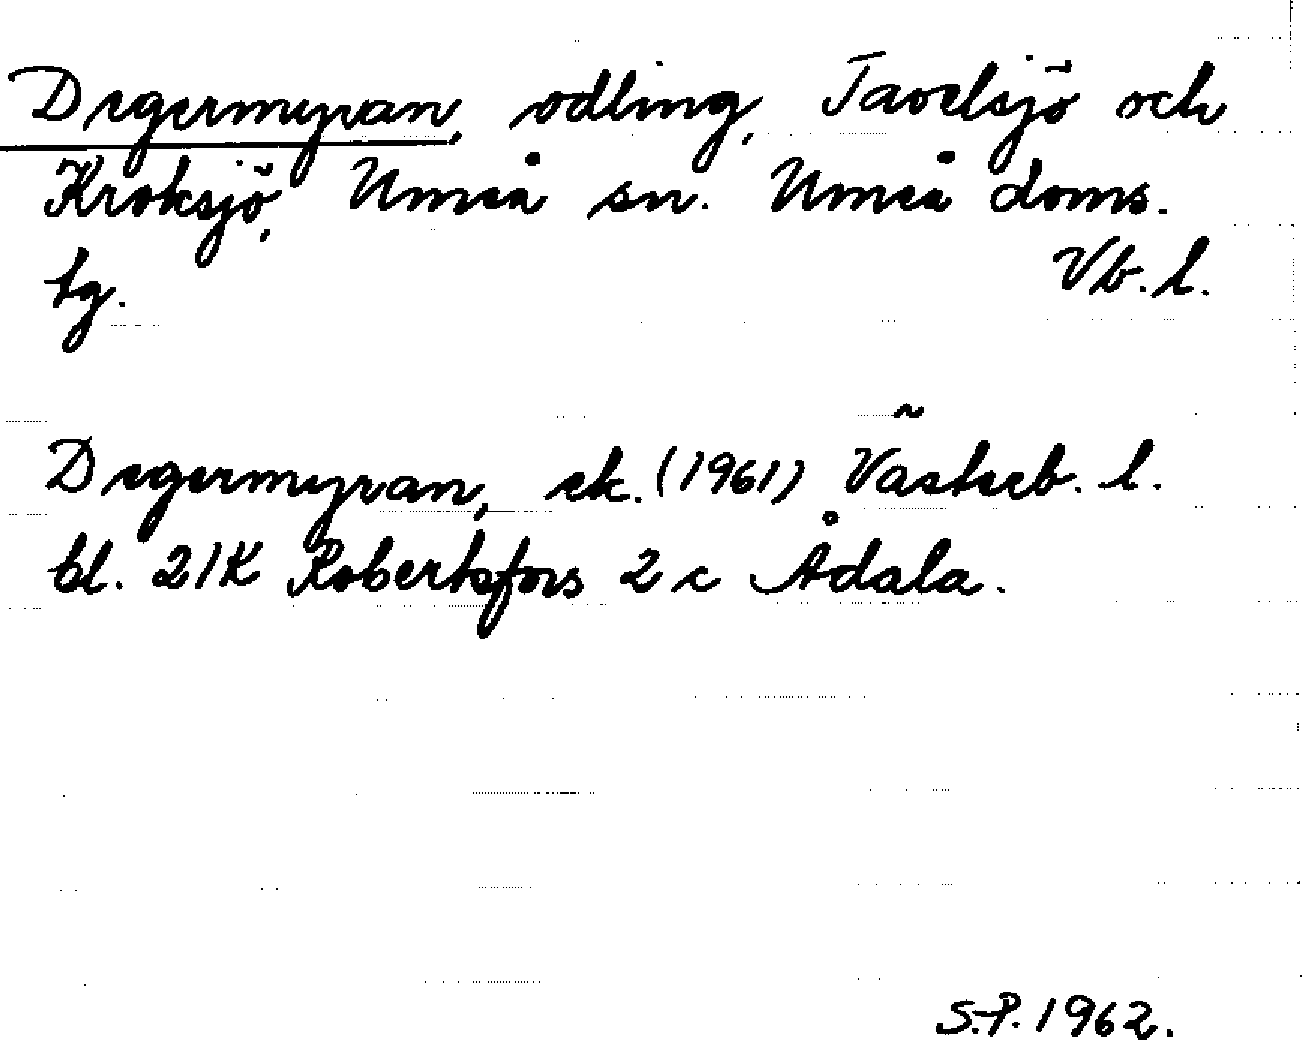 Degermyran, odling, Tavelsjö och
Kroksjö, Umeå sn. Umeå doms.
tg. Vb. l.
Degermyran, ek. (1961) Västerb. l.
bl. 21K Robertsfors 2 c Ådala.
S.P. 1962.